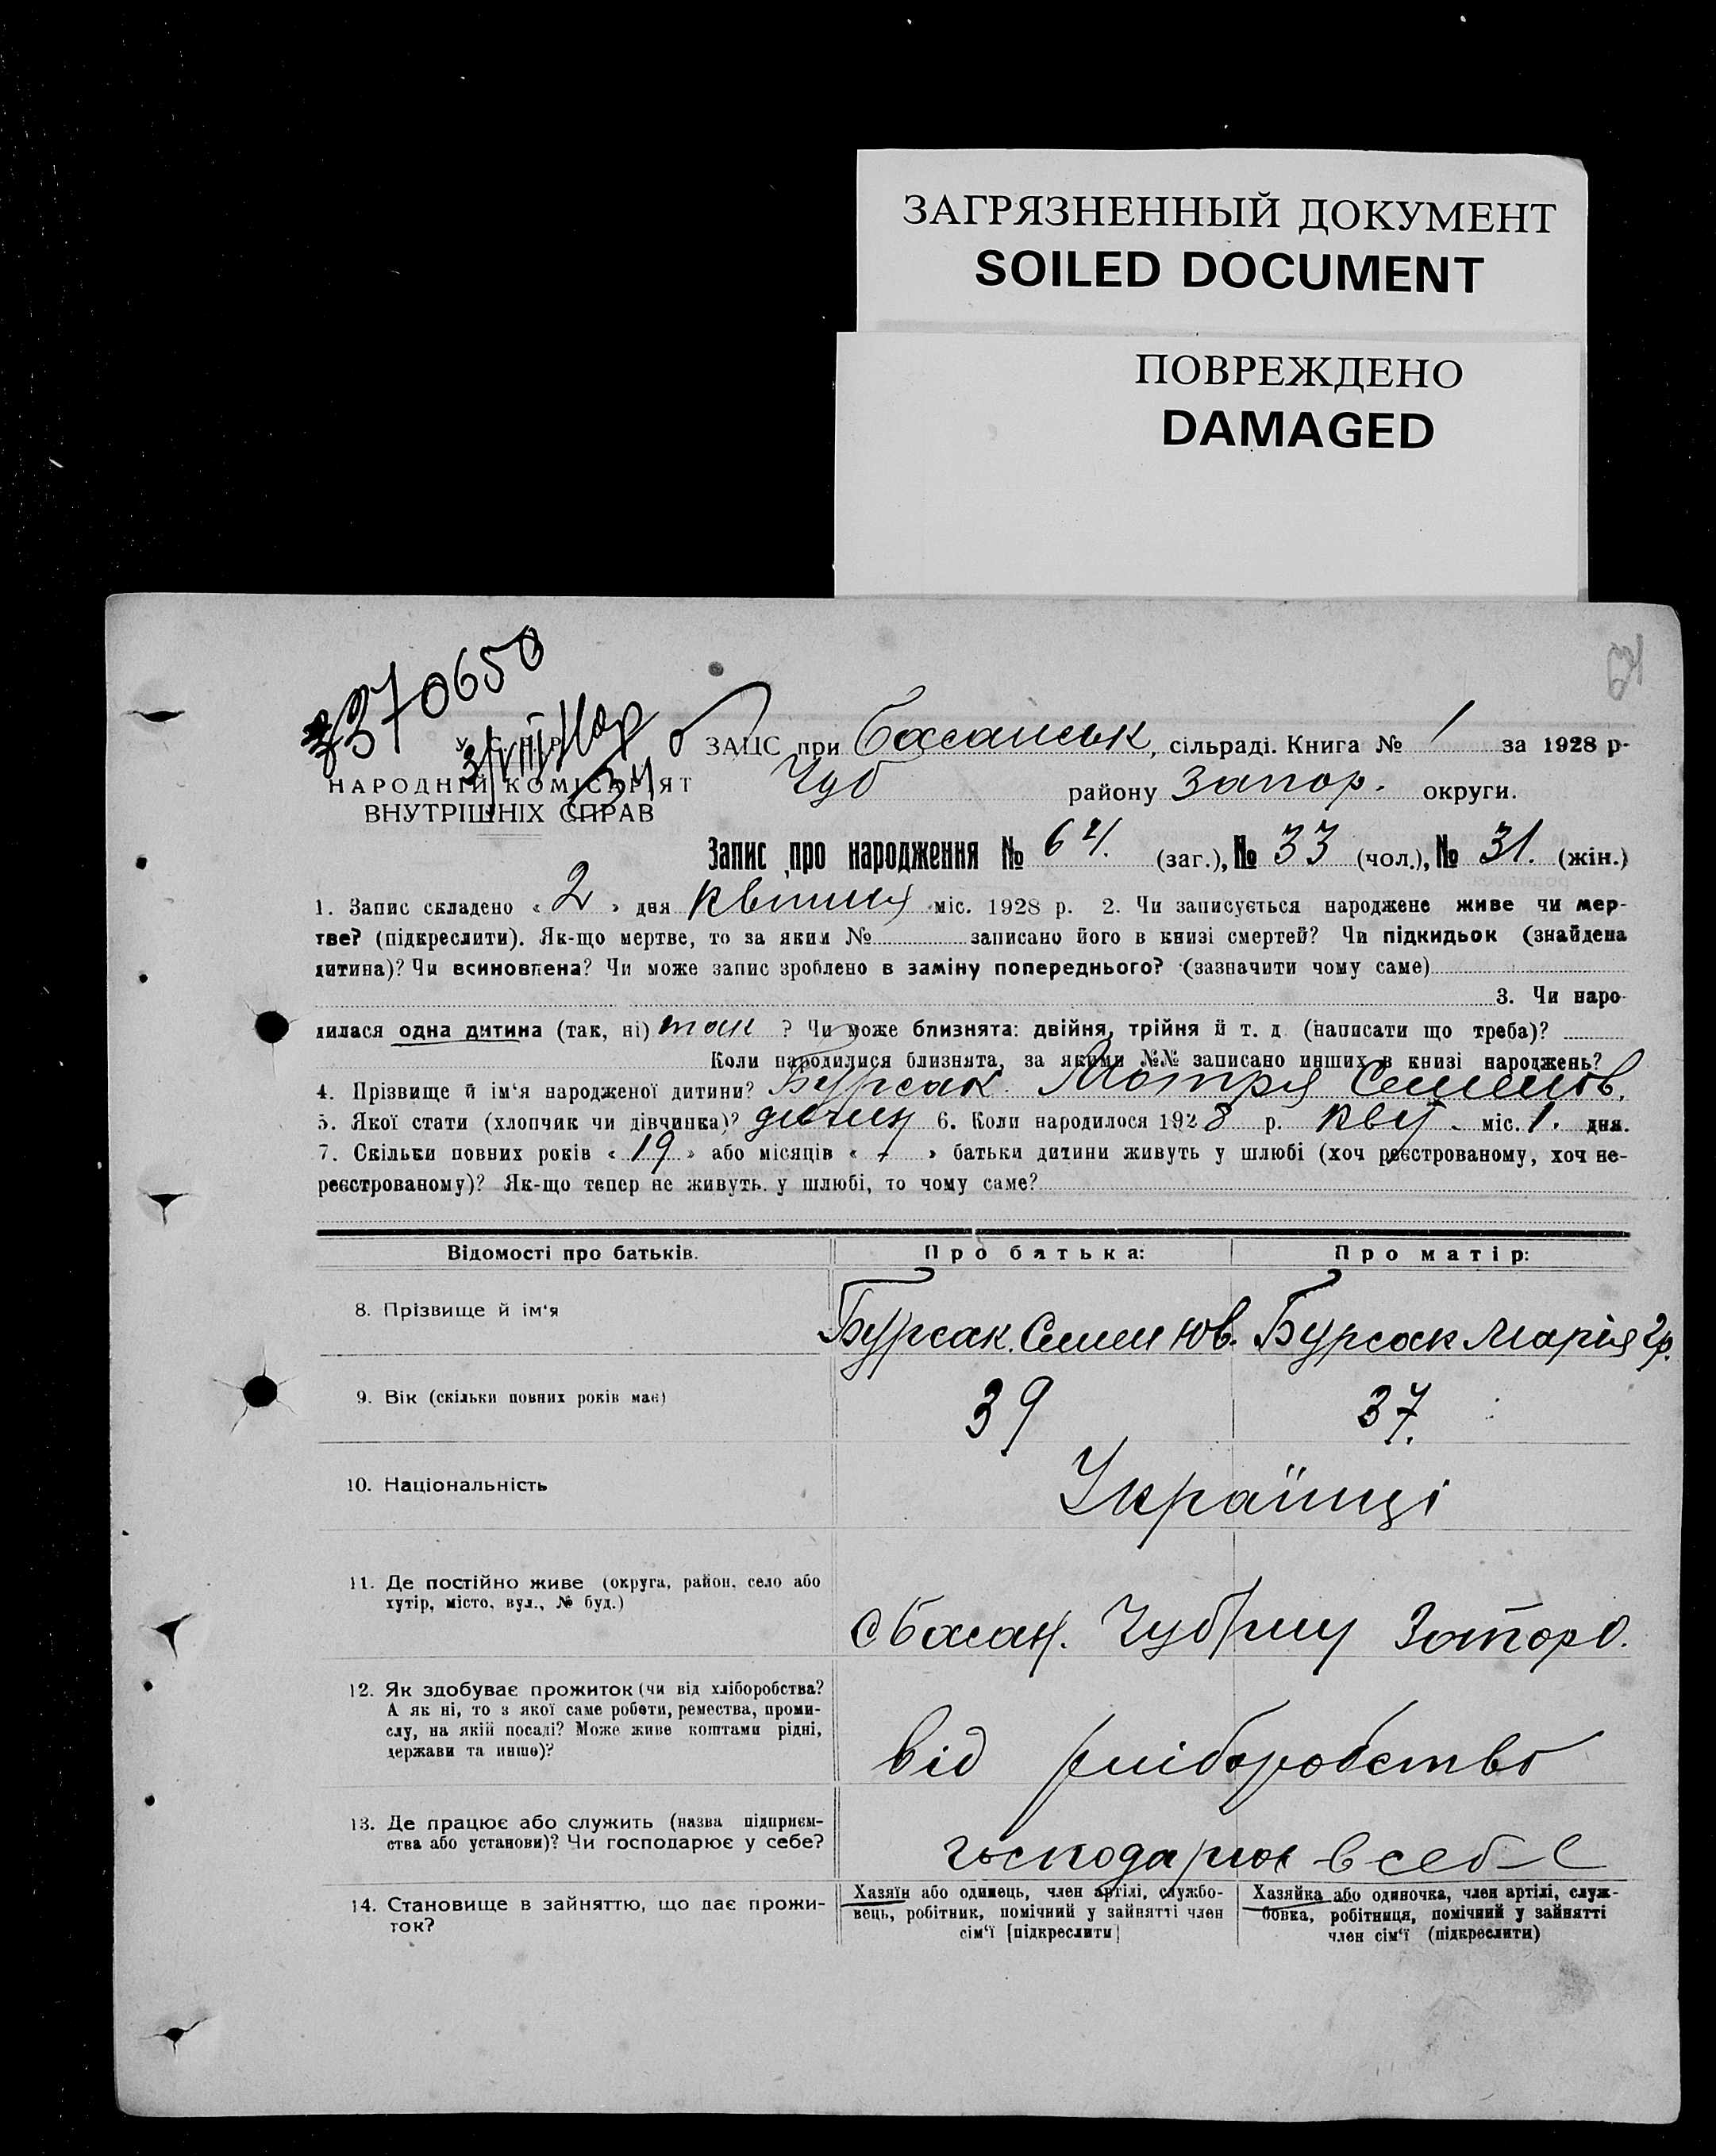 ЗАГРЯЗНЕННЫЙ ДОКУМЕНТ
SOILED DOCUMENT
ПОВРЕЖДЕНО
DAMAGED
370650
У.С.Р.Р.
НАРОДНІЙ КОМІСАРІЯТ
ВНУТРІШНІХ СПРАВ
ЗАЦС при Басанськ, сільраді. Книга № 1 за 1928 р-
Чуб району Запор. округи.
Запис про народження № 64. (заг.), № 33 (чол.), № 31. (жін.)
1. Запис складено « 2 » дня квітня міс. 1928 р. 2. Чи записується народжене живе чи мер-
тве? (підкреслити). Як-що мертве, то за яким № записано його в книзі смертей? Чи підкидьок (знайдена
дитина)? Чи всиновлена? Чи може запис зроблено в заміну попереднього? (зазначити чому саме)
3. Чи наро-
дилася одна дитина (так, ні) так ? Чи може близнята: двійня, трійня й т. д. (написати що треба)?
Коли народилися близнята, за якими №№ записано инших в книзі народжень?
4. Прізвище й ім'я народженої дитини? Бурсак Мотря Семенов.
5. Якої стати (хлопчик чи дівчинка)? дівчин 6. Коли народилося 1928 р. квіт. міс. 1. дня.
7. Скільки повних років « 19 » або місяців « - » батьки дитини живуть у шлюбі (хоч реєстрованому, хоч не-
реєстрованому)? Як-що тепер не живуть у шлюбі, то чому саме?
Відомості про батьків. Про батька: Про матір:
8. Прізвище й ім'я Бурсак Семен Юв. Бурсак Марія Гр.
9. Вік (скільки повних років має) 39 37.
10. Національність Українці
11. Де постійно живе (округа, район, село або
хутір, місто, вул., № буд.)
с Басан. Чуб р-ну Запор о.
12. Як здобуває прожиток (чи від хліборобства?
А як ні, то з якої саме роботи, ремества, проми-
слу, на якій посаді? Може живе коштами рідні,
держави та инше)?
від хліборобство
13. Де працює або служить (назва підприєм-
ства або установи)? Чи господарює у себе?
господарює в себе
14. Становище в зайняттю, що дає прожи-
ток?
Хазяїн або одинець, член артілі, службо-
вець, робітник, помічний у зайнятті член
сім'ї [підкреслити]
Хазяйка або одиночка, член артілі, служ-
бовка, робітниця, помічний у зайнятті
член сім'ї (підкреслити)